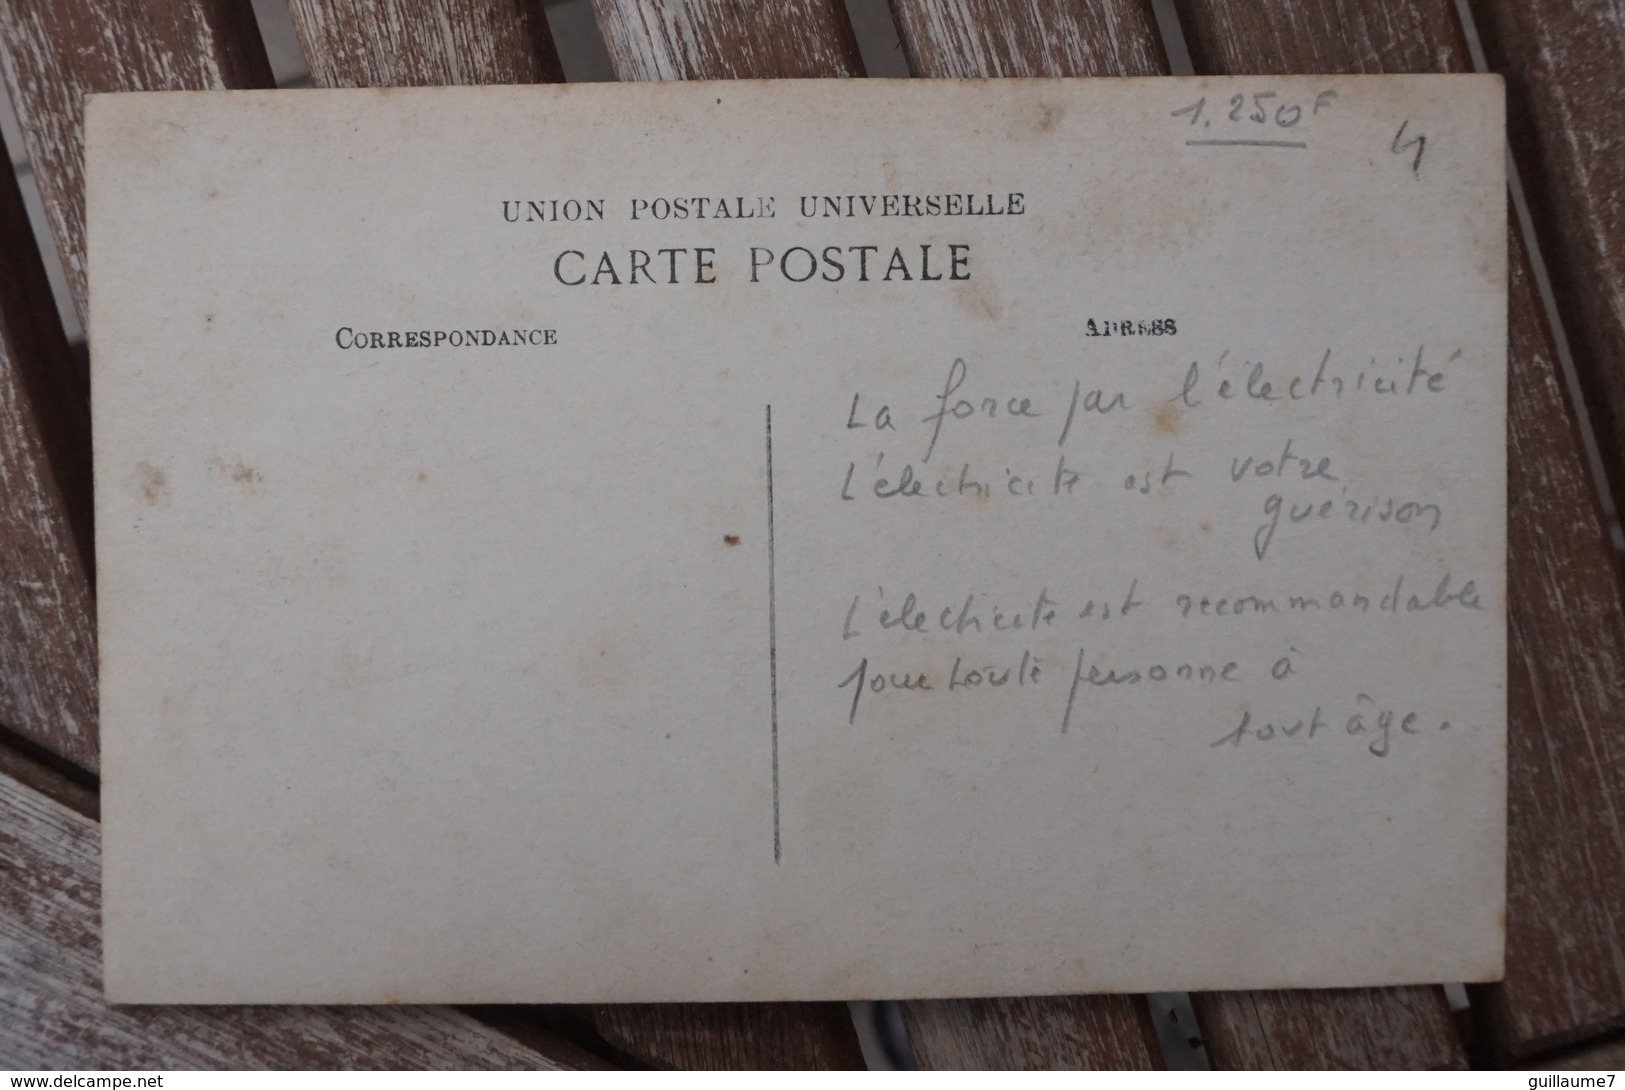 1.250F
4
UNION POSTALE UNIVERSELLE
CARTE POSTALE
CORRESPONDANCE
ADRESS
La force par l'électricité
L'électricité est votre
guérison
L'électricité est recommandable
pour toute personne à
tout âge.
www.delcampe.net
guillaume7